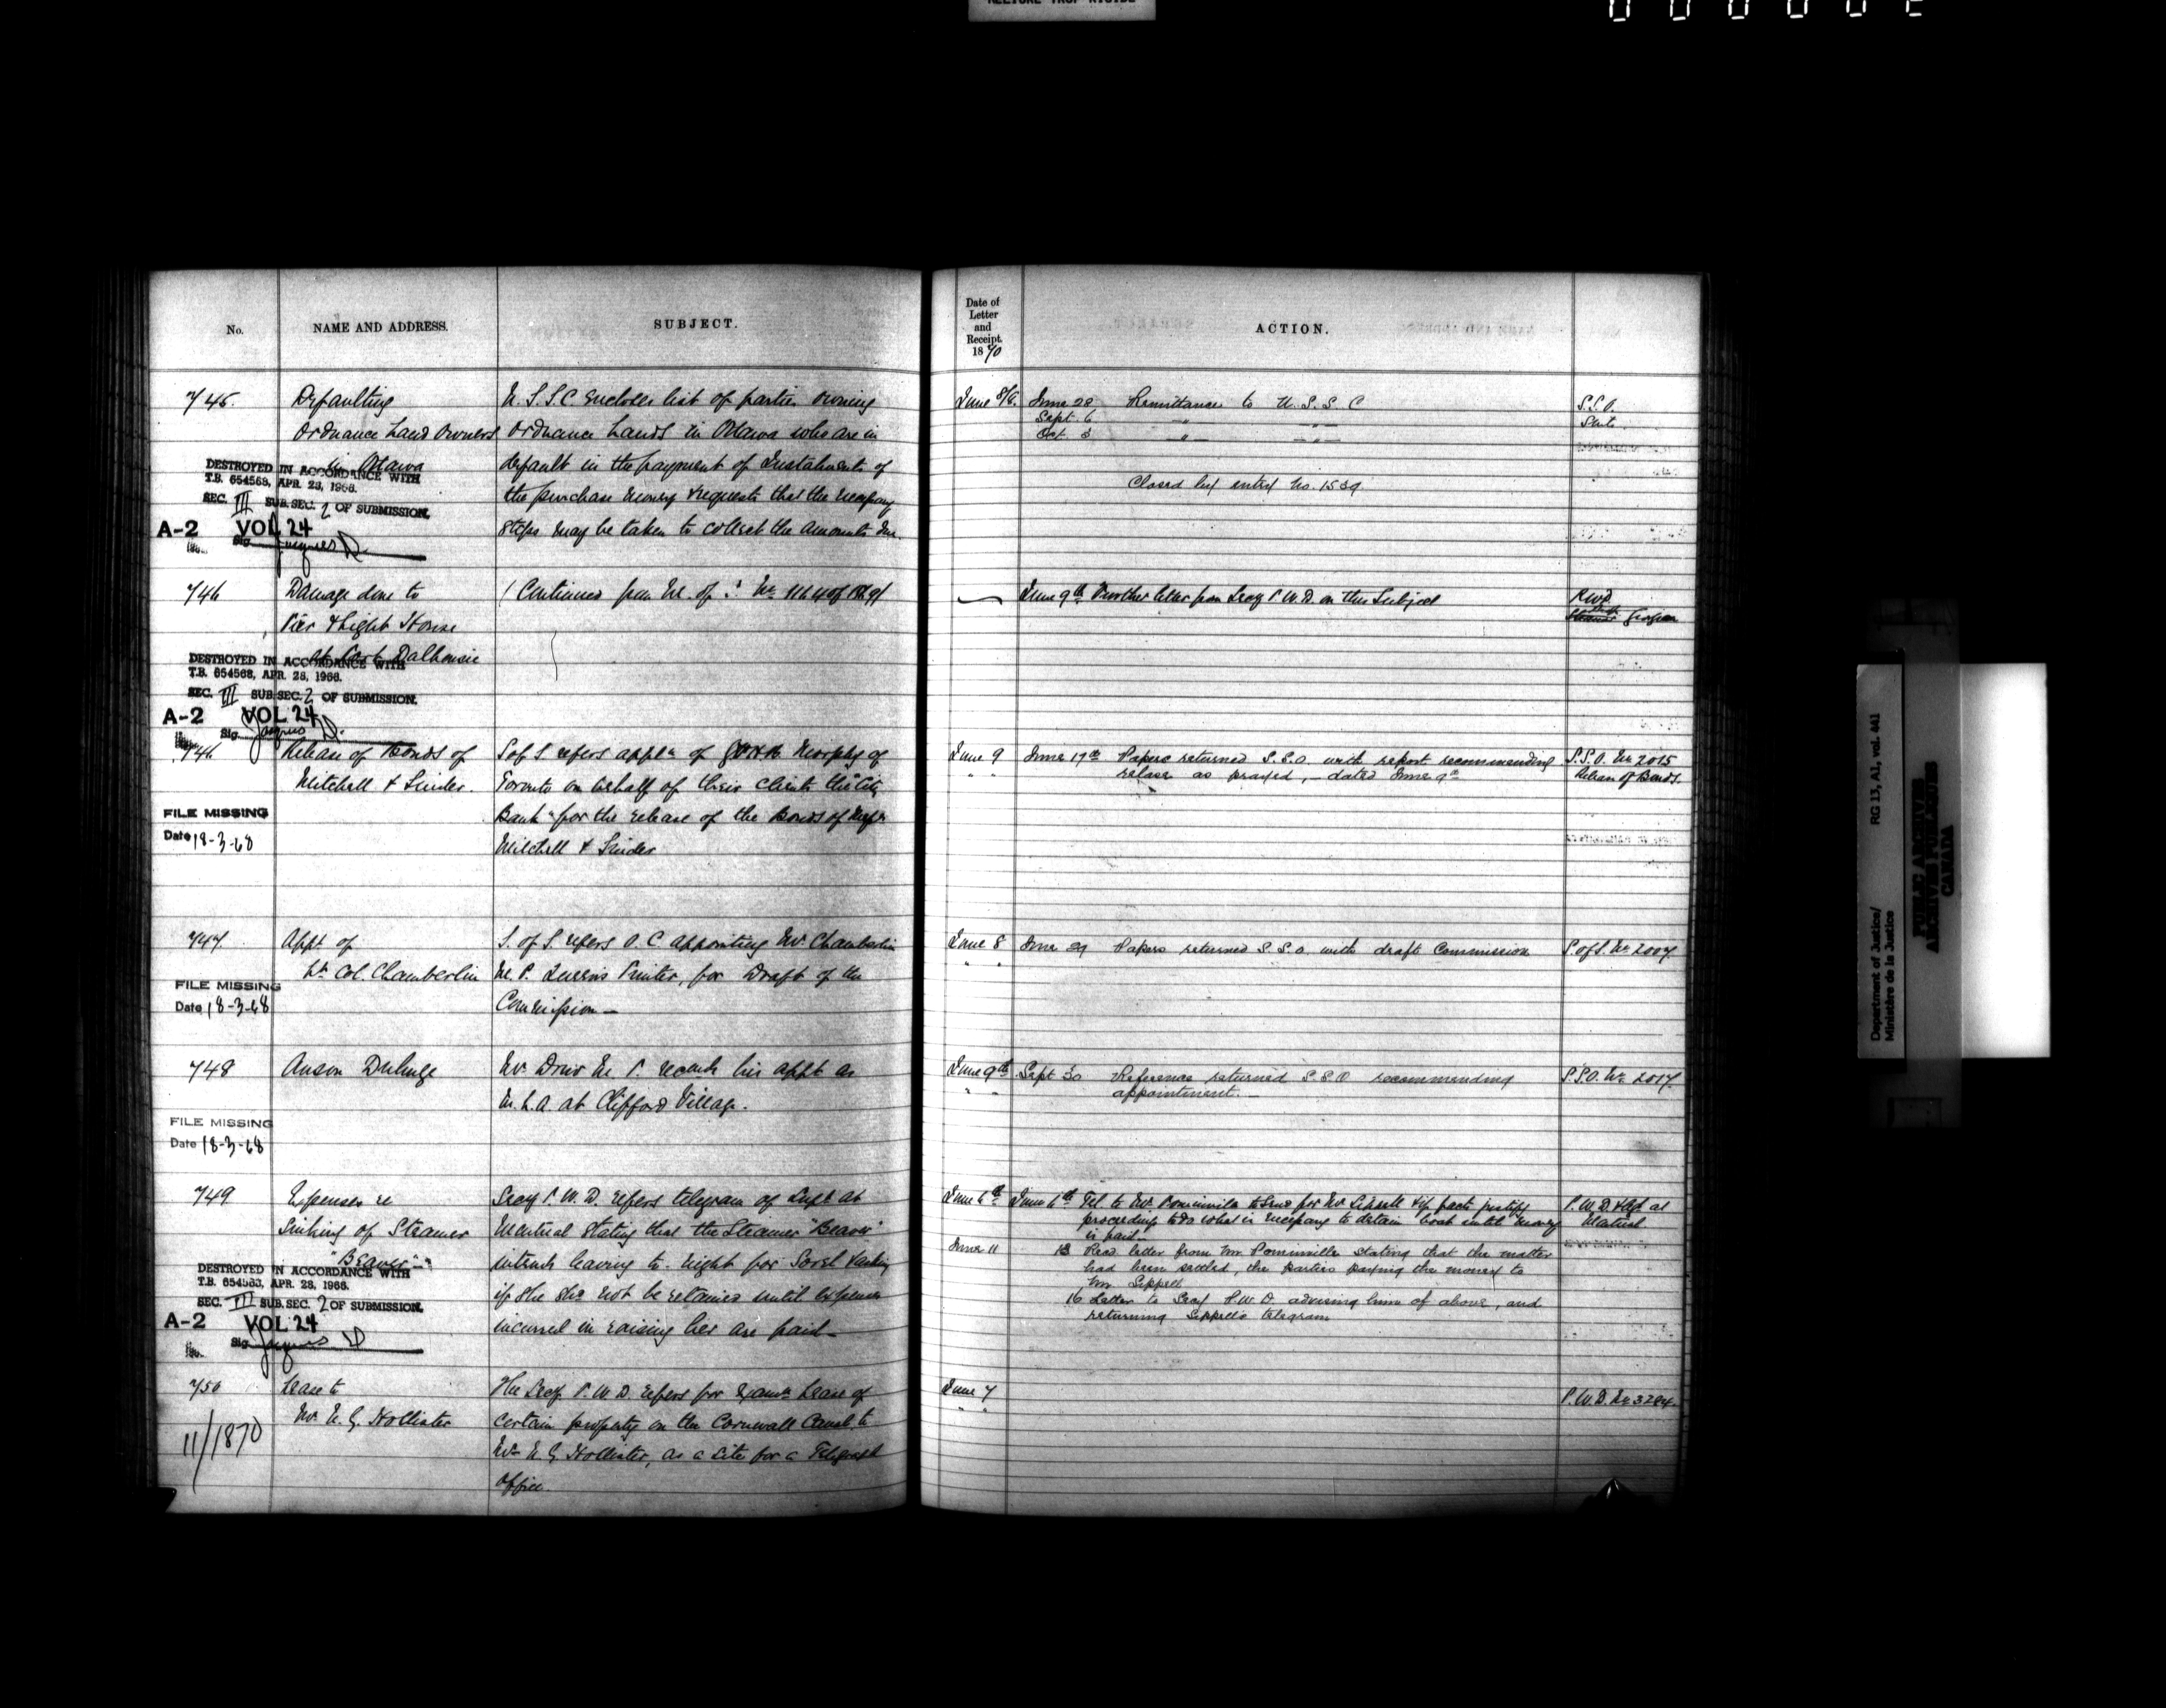 No.
NAME AND ADDRESS.
SUBJECT.
745.
Defaulting
Ordnance Land Owners
in Ottawa
DESTROYED IN ACCORDANCE WITH
T.B. 654568, APR. 28, 1966.
SEC. III SUB.SEC. 2 OF SUBMISSION.
A-2 VOL 24
Sig. Jacques D.
U.S.S.C encloses list of parties owning
Ordnance Lands in Ottawa who are in
default in the payment of Instalments of
the purchase money & requests that the necessary
steps may be taken to collect the amounts due.
746
Damage done to
Pier & Light House
at Port Dalhousie
DESTROYED IN ACCORDANCE WITH
T.B. 654568, APR. 28, 1966.
SEC. III SUB.SEC. 2 OF SUBMISSION.
A-2 VOL 24
Sig. Jacques D.
(Continued from
746
Release of Bonds of
Mitchell &
FILE MISSING
Date 18-3-68
S of S. refers appln of Murphy of
Toronto on behalf of their clients the "City
Bank" for the release of the Bonds of Messrs
Mitchell &
747.
Appt of
Lt. Col. Chamberlin
FILE MISSING
Date 18-3-68
S. of S. refers O.C appointing Mr. Chamberlin
M.P. Queen's Printer, for Draft of the
Commission —
748
Anson
FILE MISSING
Date 18-3-68
Mr. Drew M.P. recomds his appt as
at Clifford Village.
749
Expenses re
Sinking of Steamer
"Beaver"
DESTROYED IN ACCORDANCE WITH
T.B. 654563, APR. 28, 1966.
SEC. III SUB.SEC. 2 OF SUBMISSION.
A-2 VOL 24
Sig. Jacques D
Secy P.W.D. refers telegram of Supt at
Montreal stating that the Steamer "Beaver"
intends leaving to-night for Sorel & asking
if she shd not be retained until expenses
incurred in raising her are paid —
750
Lease to
Mr. E. G. Hollister
11/1870
The Secy P.W.D. refers for Lease of
certain property on the Cornwall Canal to
Mr. E. G. Hollister, as a site for a Telegraph
Office.
Date of
Letter
and
Receipt.
1870
ACTION.
June 8/8. June 28 Remittance to U.S.S.C S.S.O.
Sept. 6 — " — — " —
Oct. 3 — " — — " —
Closed by entry No. 1539
June 9th Further letter from Secy P.W.D. on this Subject PWD
June 9 June 17th Papers returned S.S.O. with report recommending S.S.O. No 2015
" " release as prayed, — dated June 9th Release of Bonds.
June 8 June 29 Papers returned S.S.O. with draft Commission S. of S. No 2007.
June 9th Sept 30 Reference returned S.S.O recommending S.S.O. No 2017.
appointment. —
June 6th June 6th Tel. to Mr. Pominville to send for Mr. Sippell & if facts justify P.W.D.
proceeding to do what is necessary to detain boat until money
is paid —
June 11 13 Read letter from Mr Pominville stating that the matter
had been settled, the parties paying the money to
Mr Sippell
16 Letter to Secy P.W.D. advising him of above, and
returning Sippell's telegram
June 7 P.W.D. No 3284.
Department of Justice/
Ministère de la Justice
RG 13, A1, vol. 441
PUBLIC ARCHIVES
ARCHIVES PUBLIQUES
CANADA